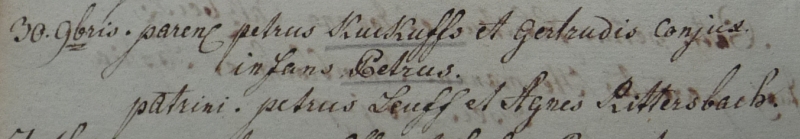 30. 9bris. parens petrus Kuckuffs et Gertrudis Conjux.
infans Petrus.
patrini. petrus Leuff et Agnes Rittersbach.